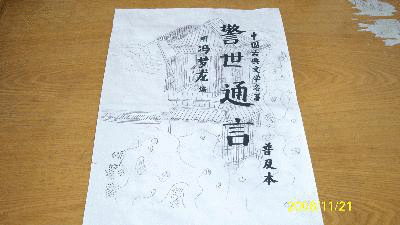 中国古典文学名著
警世通言
明 冯梦龙 编
普及本
2008/11/21